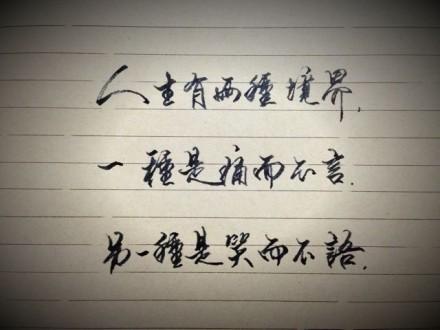 人生有兩種境界,
一種是痛而不言.
另一種是笑而不語.